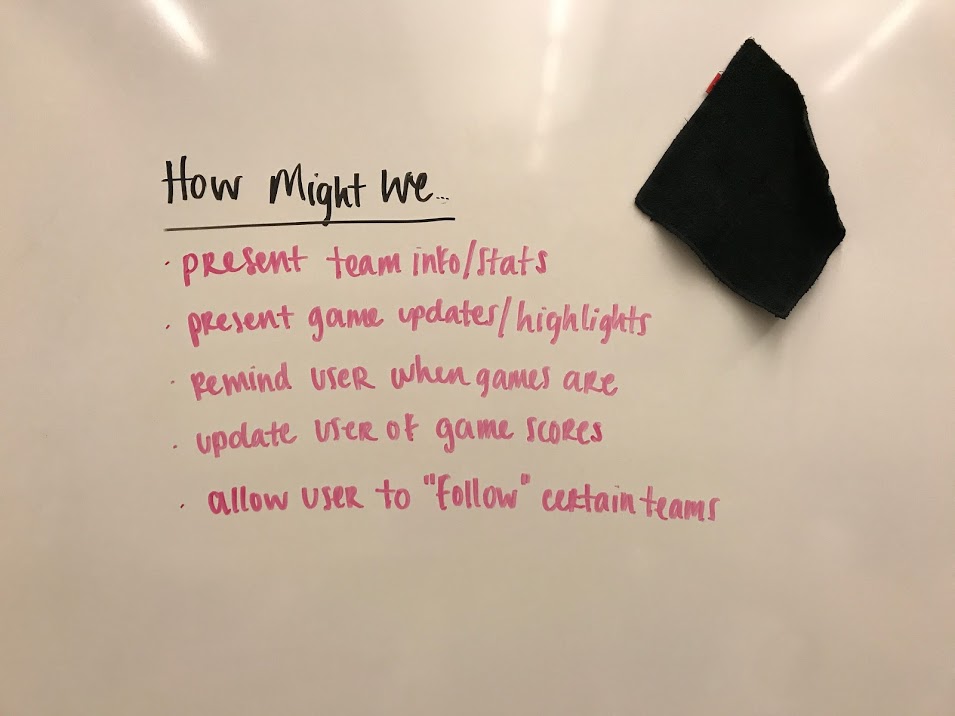 How Might We...
· present team info/stats
· present game updates/highlights
· remind user when games are
· update user of game scores
· allow user to "follow" certain teams